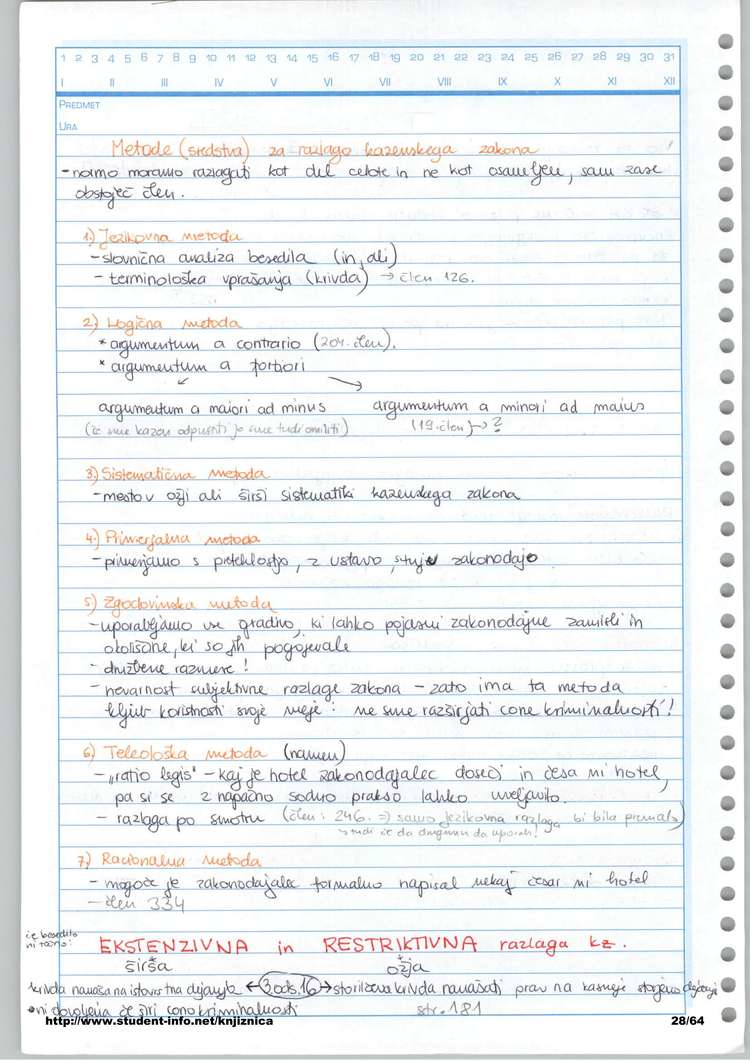 1 2 3 4 5 6 7 8 9 10 11 12 13 14 15 16 17 18 19 20 21 22 23 24 25 26 27 28 29 30 31
I II III IV V VI VII VIII IX X XI XII
PREDMET
URA
Metode (sredstva) za razlago kazenskega zakona
- normo moramo razlagati kot del celote in ne kot osamljen, sam zase
obstoječ člen.
1) Jezikovna metoda
- slovnična analiza besedila (in, ali)
- terminološka vprašanja (krivda) → člen 126.
2) Logična metoda
* argumentum a contrario (204. člen).
* argumentum a fortiori
argumentum a maiori ad minus argumentum a minori ad maius
(če sme kazen odpustiti jo sme tudi omiliti) (19. člen) → ?
3) Sistematična metoda
- mesto v ožji ali širši sistematiki kazenskega zakona
4) Primerjalna metoda
- primerjamo s preteklostjo, z ustavo, tujo zakonodajo
5) Zgodovinska metoda
- uporabljamo vse gradivo, ki lahko pojasni zakonodajne zamisli in
okoliščine, ki so jih pogojevale
- družbene razmere!
- nevarnost subjektivne razlage zakona - zato ima ta metoda
kljub koristnosti svoje meje: ne sme razširjati cone kriminalnosti!
6) Teleološka metoda (namen)
- "ratio legis" - kaj je hotel zakonodajalec doseči in česa ni hotel,
pa si se z napačno sodno prakso lahko uveljavilo.
- razlaga po smotru (člen: 246. => samo jezikovna razlaga bi bila premalo)
→ tudi če da drugemu da uporabi!
7) Racionalna metoda
- mogoče je zakonodajalec formalno napisal nekaj česar ni hotel
- člen 334
če besedilo
ni točno:
EKSTENZIVNA in RESTRIKTIVNA razlaga kz.
širša ožja
krivda nanaša na istovrstna dejanja ← 3.ods.16 → storilčeva krivda nanašati prav na kasneje storjeno dejanje
• ni dovoljena če širi cono kriminalnosti str. 181
http://www.student-info.net/knjiznica 28/64